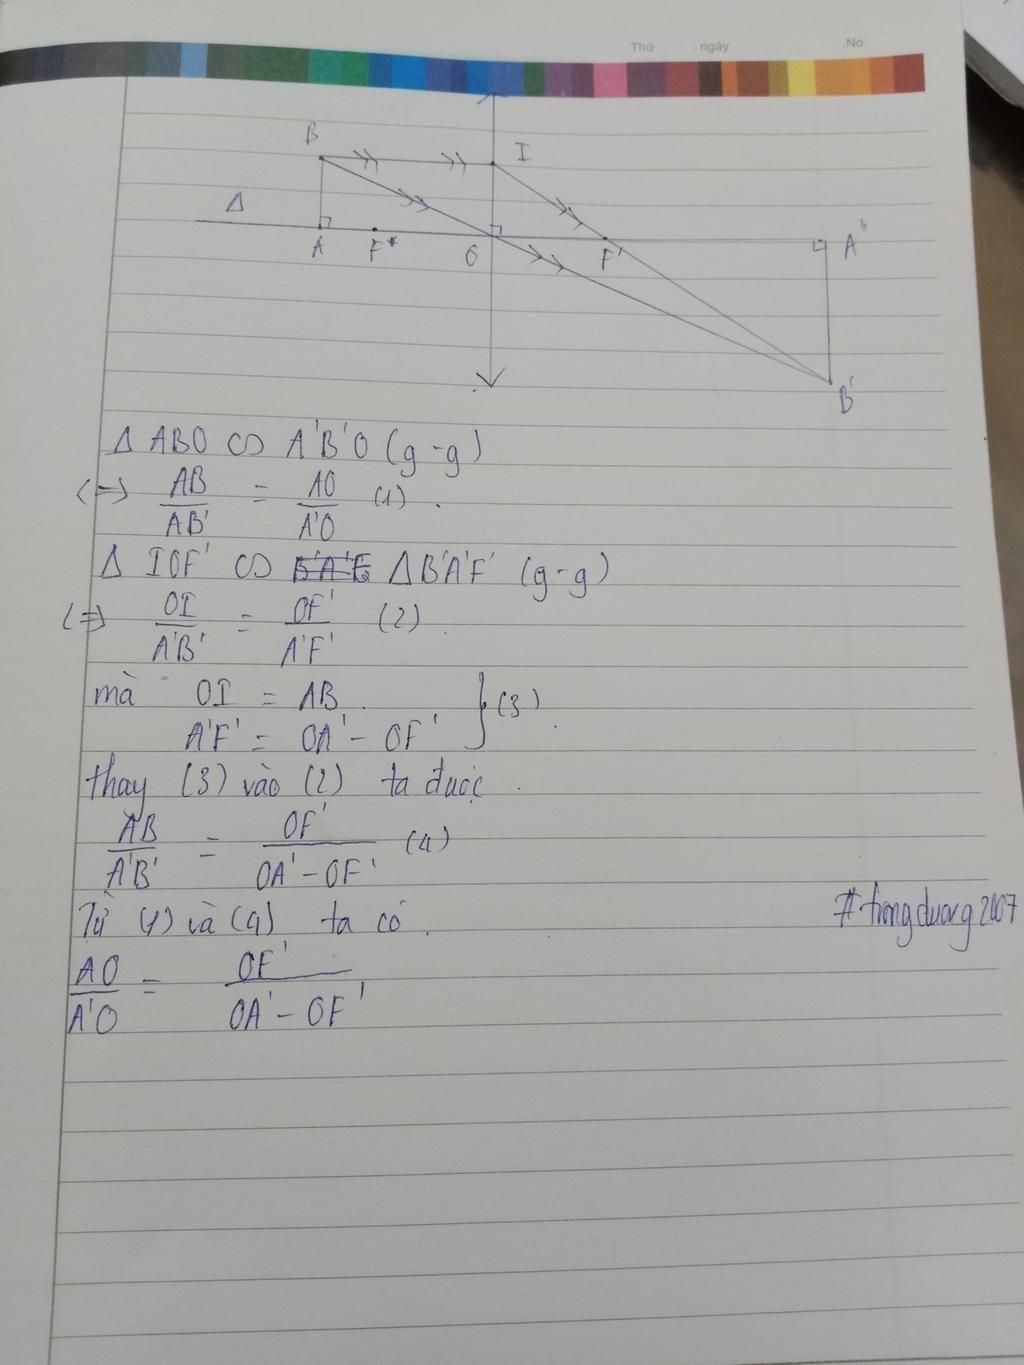 Thứ ngày No.
B I
Δ
A F* O F' A'
B'
Δ ABO ∽ A'B'O (g-g)
<=> AB/AB' = AO/A'O (1).
Δ IOF' ∽ ΔB'A'F' (g-g)
<=> OI/A'B' = OF'/A'F' (2).
mà OI = AB.
A'F' = OA' - OF' } (3).
thay (3) vào (2) ta được.
AB/A'B' = OF'/OA' - OF' (4)
Từ (1) và (4) ta có.
#trongduong2007
AO/A'O = OF'/OA' - OF'